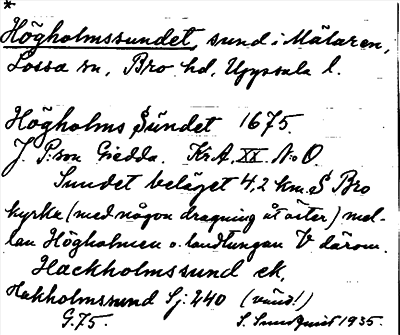 *
Högholmssundet, sund i Mälaren,
Lossa sn, Bro hd, Uppsala l.
Högholms Sundet 1675.
J. P:son Giedda. KrA, XX. N:o O.
Sundet beläget 4,2 km. S Bro
kyrka (med någon dragning åt öster) mel-
lan Högholmen o. landtungan V därom.
Hackholmssund ek.
Hakholmssund Sj: 240 (vund!)
G.75. S. Sundquist 1935.